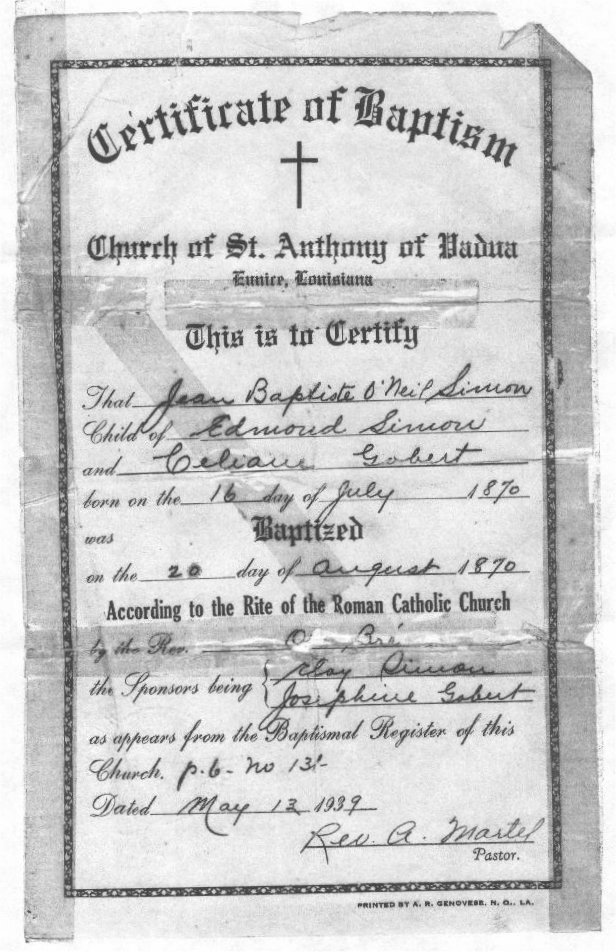 Certificate of Baptism
Church of St. Anthony of Padua
Eunice, Louisiana
This is to Certify
That Jean Baptiste O'Neil Simon
Child of Edmond Simon
and Celiane Gobert
born on the 16 day of July 1870
was Baptized
on the 20 day of August 1870
According to the Rite of the Roman Catholic Church
by the Rev. O Bré
the Sponsors being Clay Simon
Josephine Gobert
as appears from the Baptismal Register of this
Church. p.6- No 13-
Dated May 13 1939
Rev. A. Martel
Pastor.
PRINTED BY A. R. GENOVESE, N. O., LA.